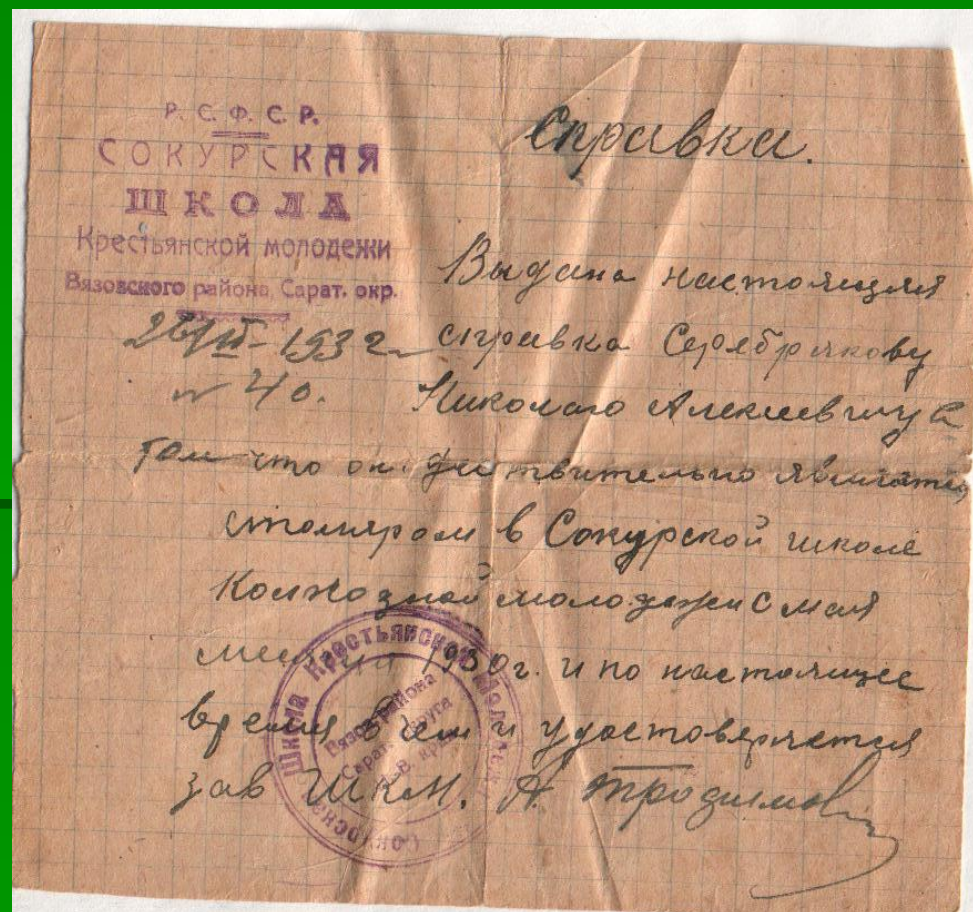 Р. С. Ф. С. Р.
СОКУРСКАЯ
ШКОЛА
Крестьянской молодежи
Вязовского района, Сарат. окр.
№ 40.
Справка.
Выдана настоящая
справка Серебрякову
Николаю Алексеевичу в
том что он действительно является
столяром в Сокурской школе
Колхозной молодежи с мая
месяца 1930г. и по настоящее
время в чем и удостоверяется
зав ШКМ. А.
Школа Крестьянской Молодежи
Вязов. района
Сарат. округа
Н.-В. края